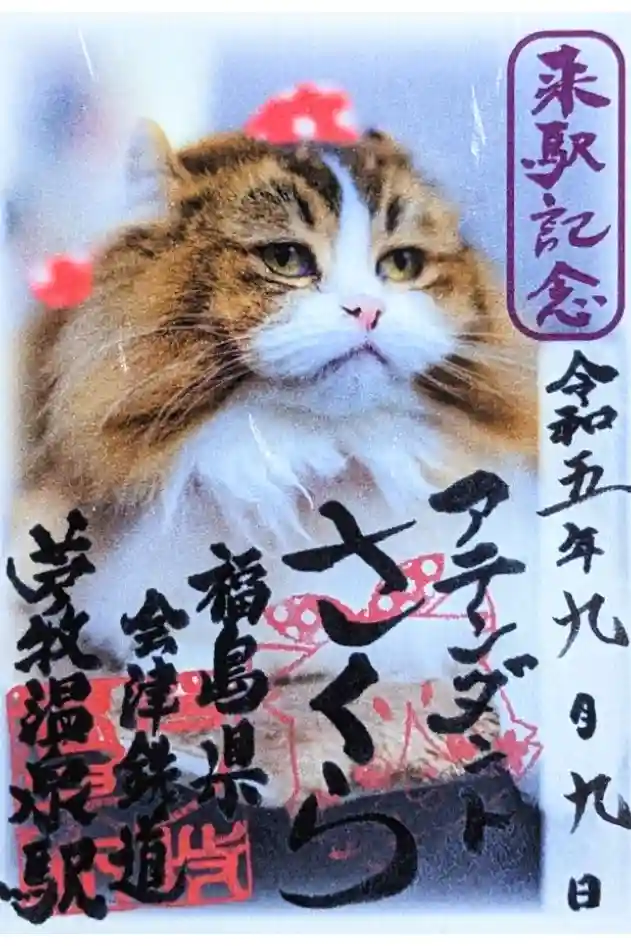 来駅記念
令和五年九月九日
アテンダント
さくら
福島県
会津鉄道
芦ノ牧温泉駅